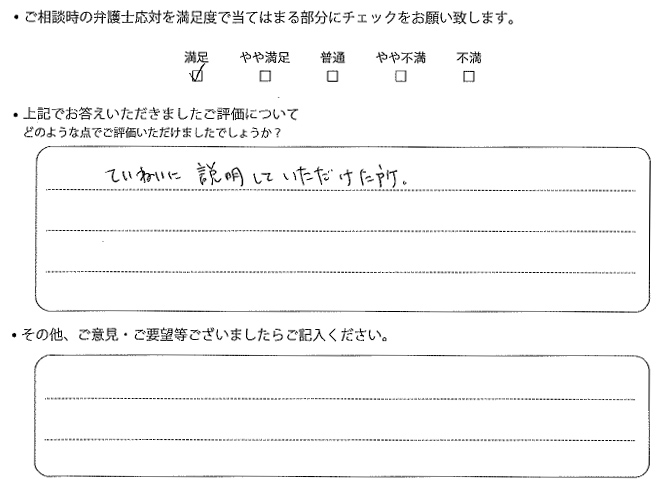 ・ご相談時の弁護士応対を満足度で当てはまる部分にチェックをお願い致します。
満足 やや満足 普通 やや不満 不満
☑ ☐ ☐ ☐ ☐
・上記でお答えいただきましたご評価について
どのような点でご評価いただけましたでしょうか？
ていねいに説明していただけた所。
・その他、ご意見・ご要望等ございましたらご記入ください。